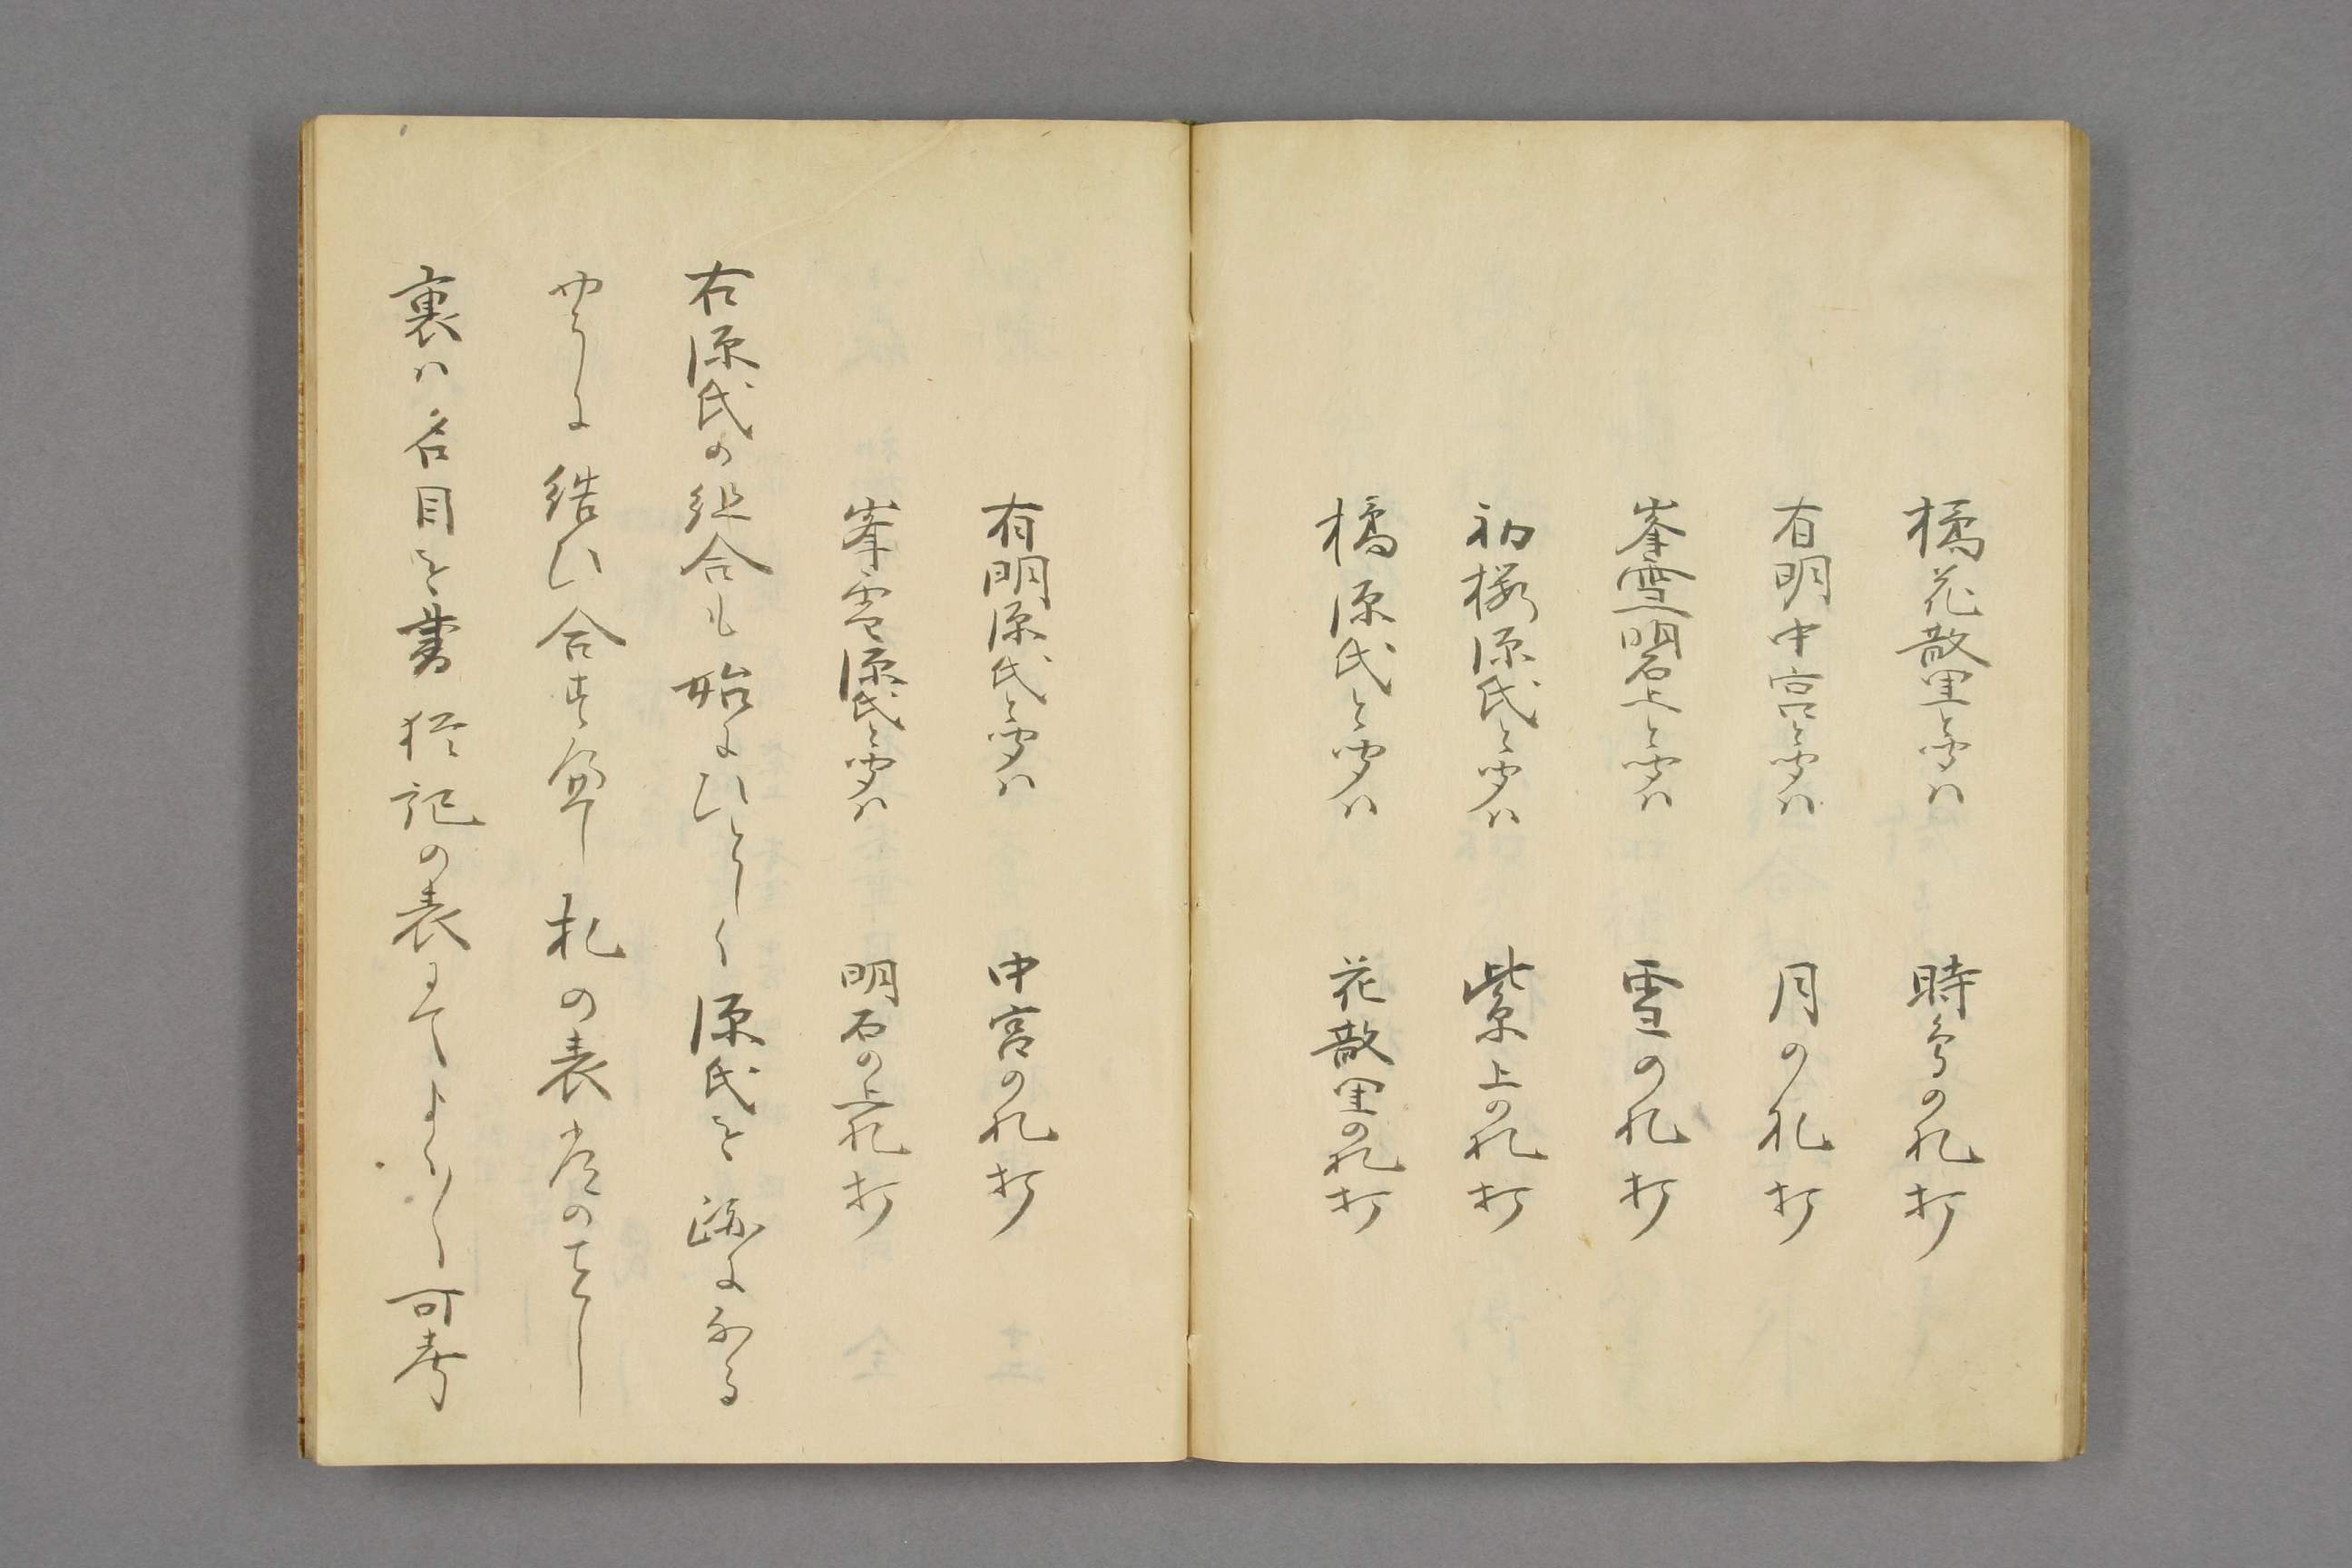 橘花散里と聞ハ　時鳥の札打
有明中宮と聞ハ　月の札打
峯雪明石上と聞ハ　雪の札打
初桜源氏と聞ハ　紫上の札打
橘源氏と聞ハ　花散里の札打
有明源氏と聞ハ　中宮の札打
峯雪源氏と聞ハ　明石の上札打
右源氏の組合も始にひとしく源氏を跡になる
やうに結ひ合すへし札の表常のことし
裏ハ名目を書　記の表にてよろしく可考